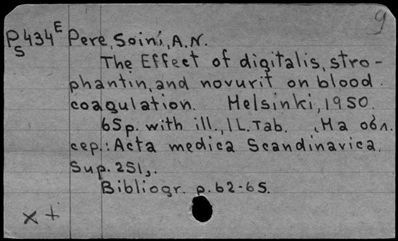 9
P 434 E Pere, Soini, A.N.
S
The Effect of digitalis, stro-
phantin, and novurit on blood
coagulation. Helsinki, 1950.
65p. with ill., 1L. Tab. , На обл.
сер.: Acta medica Scandinavica.
Sup. 251,.
Bibliogr. p. 62-65.
x +